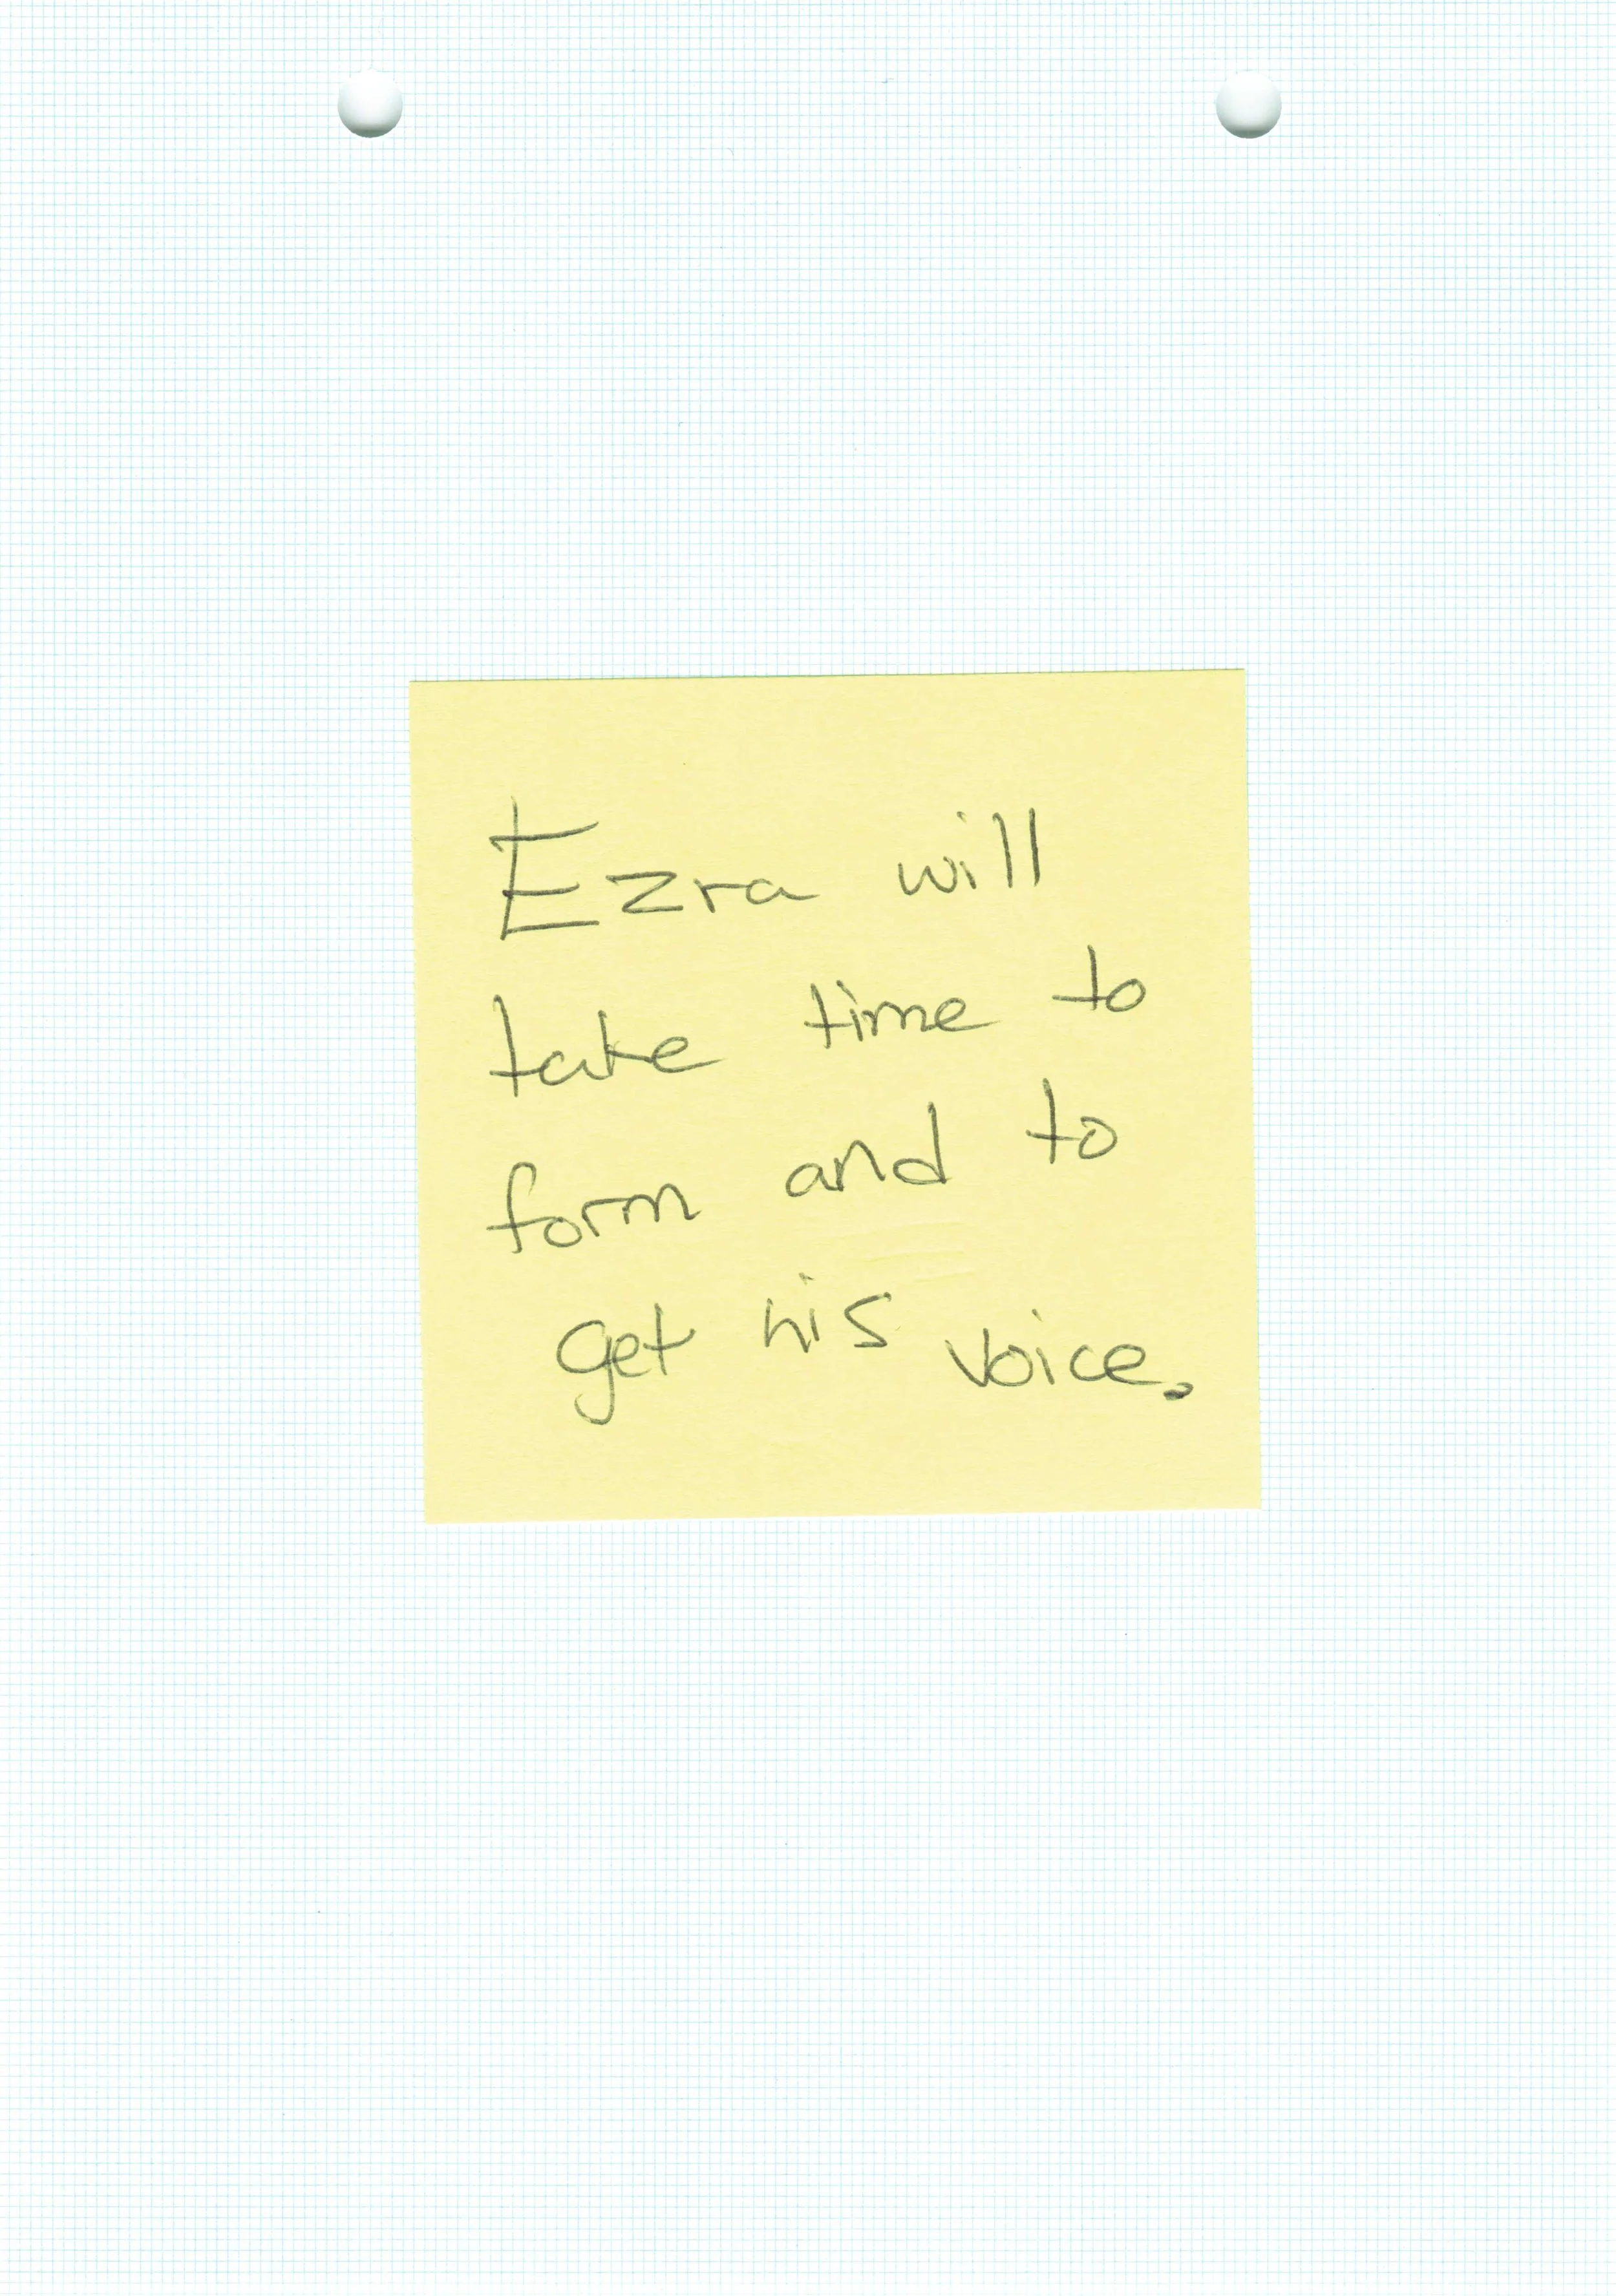 Ezra will
take time to
form and to
get his voice.